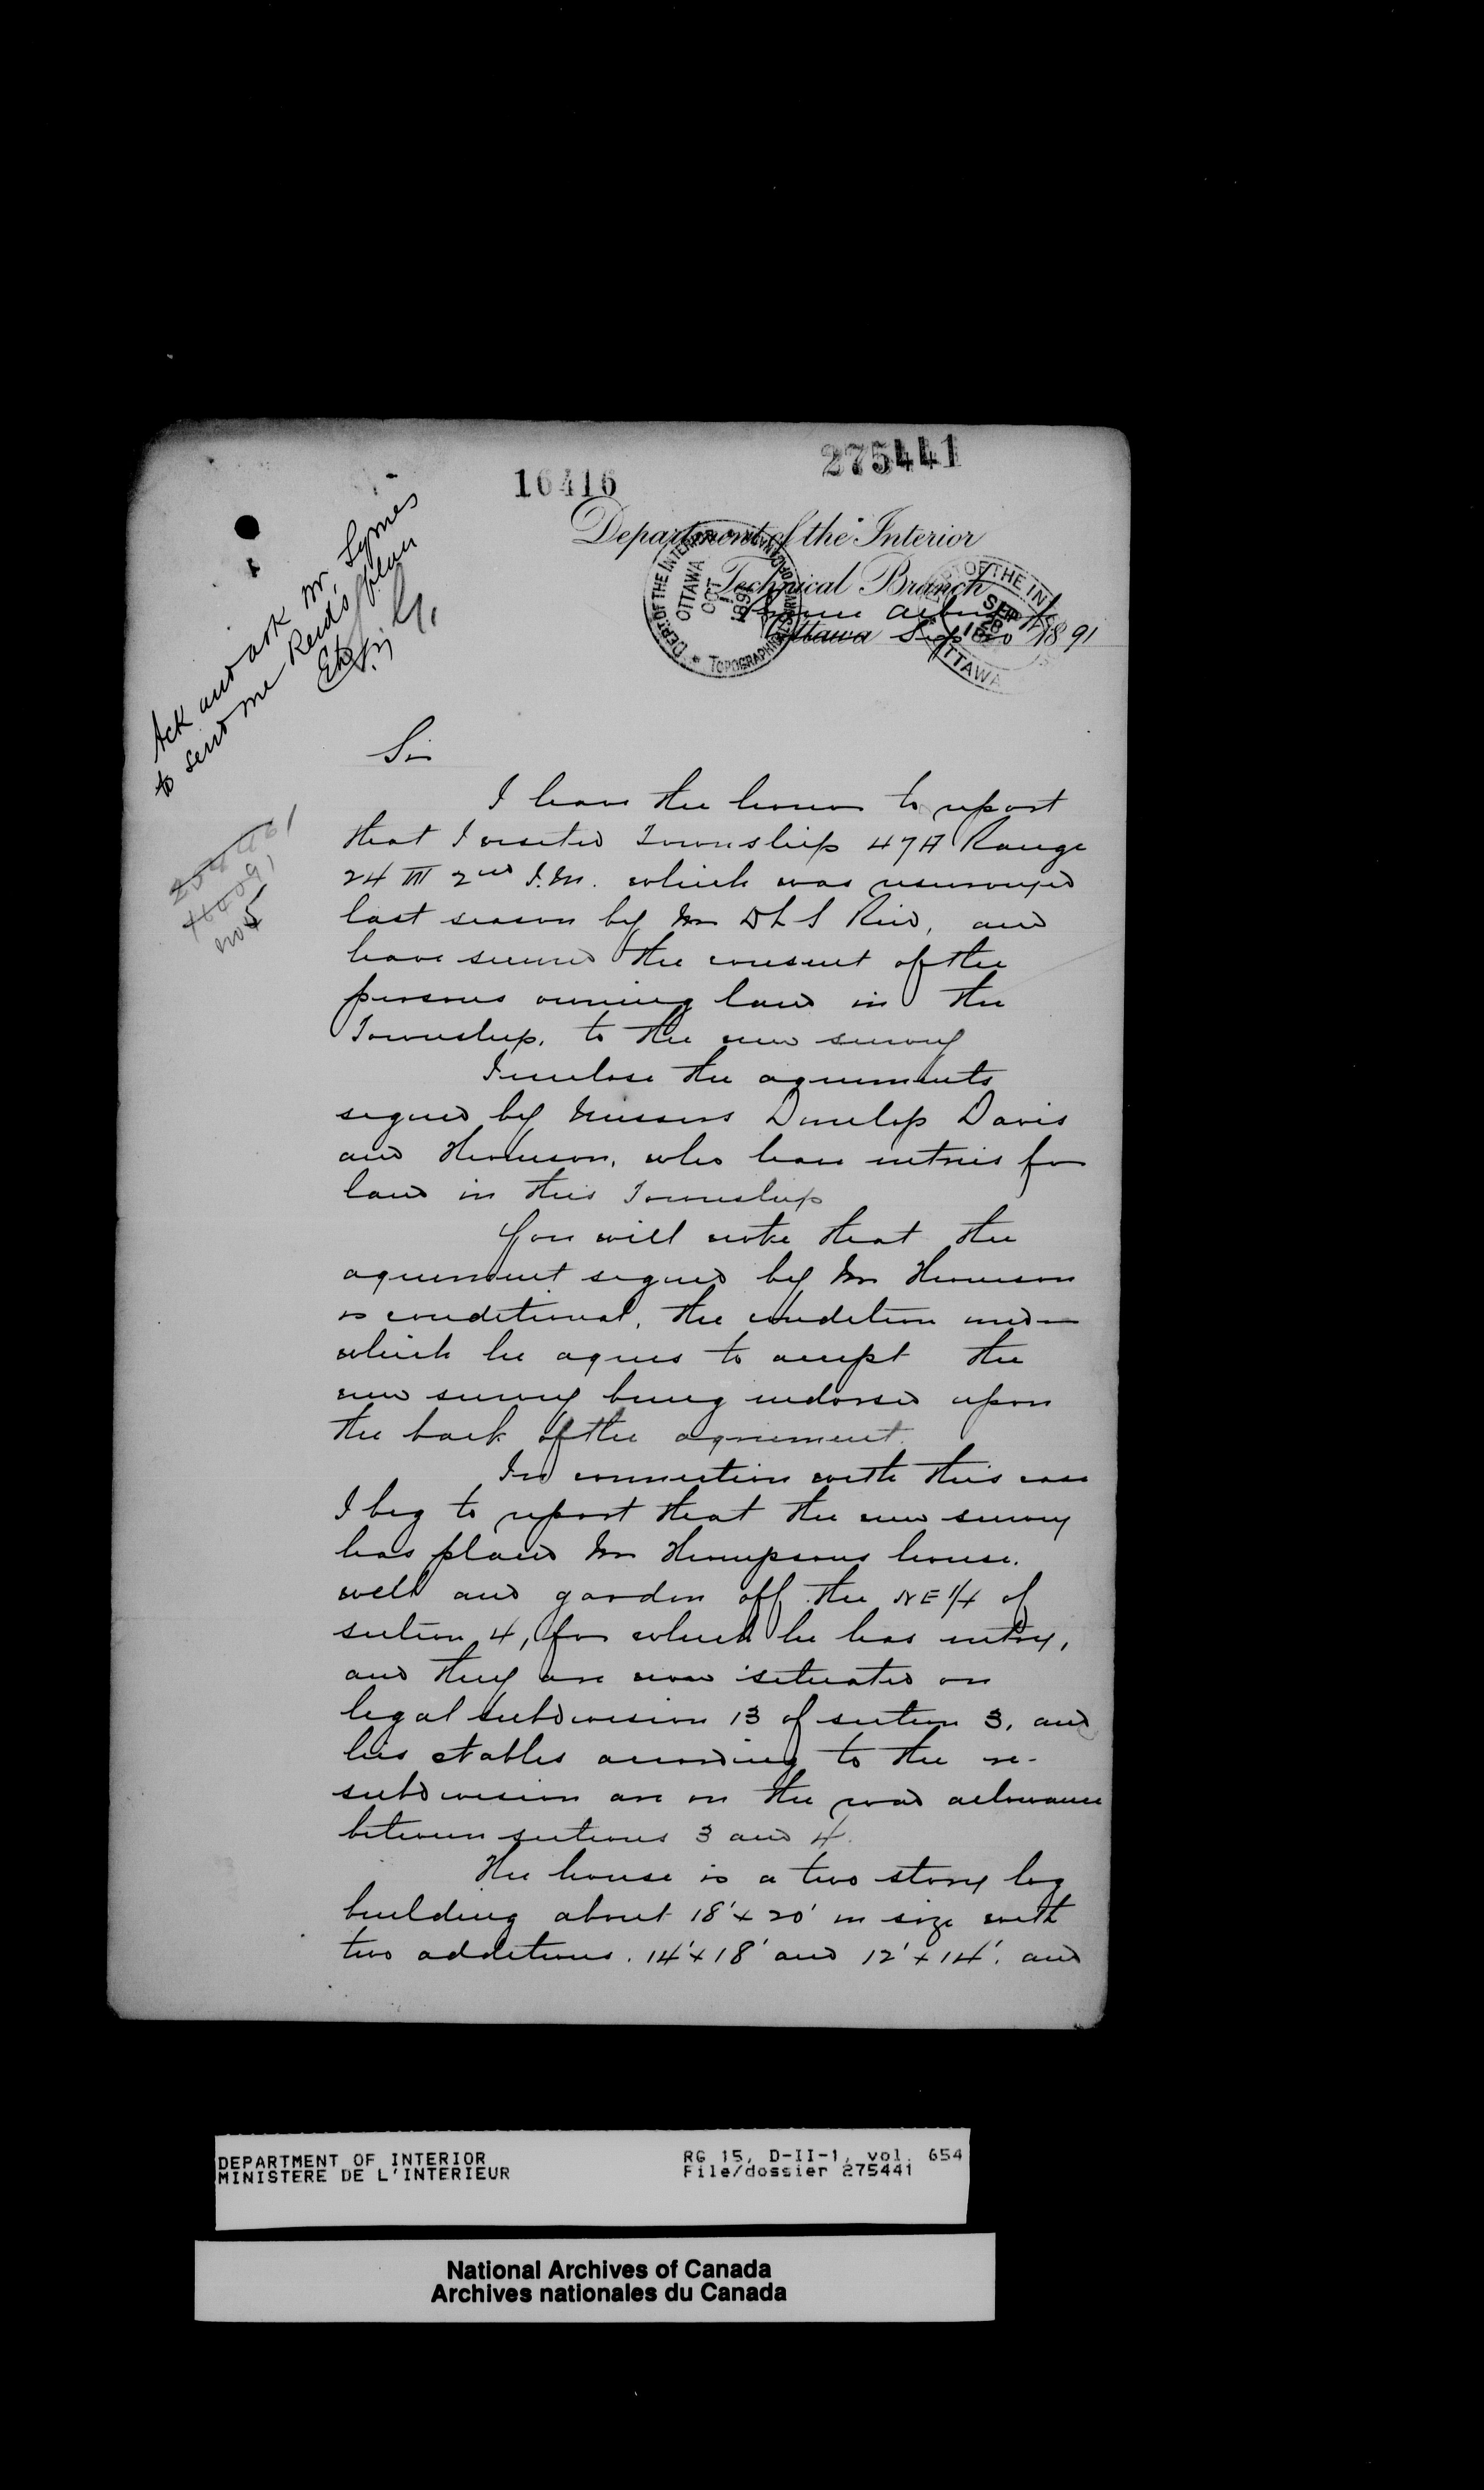 275441
16416
Department of the Interior
Technical Branch
Prince Albert
Ottawa Sep 20th 1891
DEPT. OF THE INTERIOR
OTTAWA
OCT
1
1891
TOPOGRAPHICAL SURVEYS
OF THE IN
SEP
28
OTTAWA
Ack and ask Mr. Symes
to send me Reid's plan
No 5
Sir
I have the honor to report
that I visited Township 47A Range
24 W 2nd I.M. which was resurveyed
last season by Mr DLS Reid, and
have secured the consent of the
persons owning land in the
Township, to the new survey
I enclose the agreements
signed by Messrs Dunlop Davis
and Thomson, who have entries for
land in this Township
You will note that the
agreement signed by Mr Thomson
is conditional, the condition under
which he agrees to accept the
new survey being endorsed upon
the back of the agreement.
In connection with this case
I beg to report that the new survey
has placed Mr Thompsons house,
well and garden off the NE 1/4 of
section 4, for which he has entry,
and they are now situated on
legal subdivision 13 of section 3, and
his stables according to the re-
subdivision are on the road allowance
between sections 3 and 4.
The house is a two story log
building about 18' x 20' in size with
two additions. 14' x 18' and 12' x 14'. and
DEPARTMENT OF INTERIOR
MINISTERE DE L'INTERIEUR
RG 15, D-II-1, vol. 654
File/dossier 275441
National Archives of Canada
Archives nationales du Canada